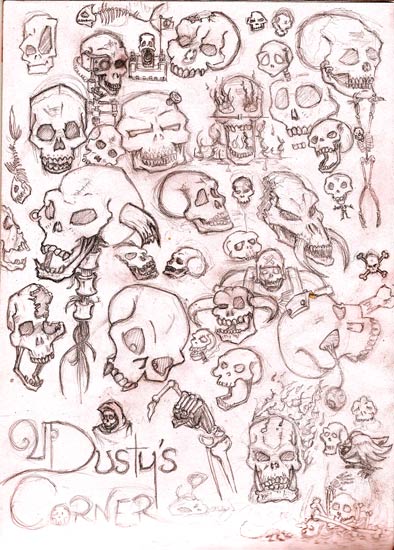 Dusty's
Corner